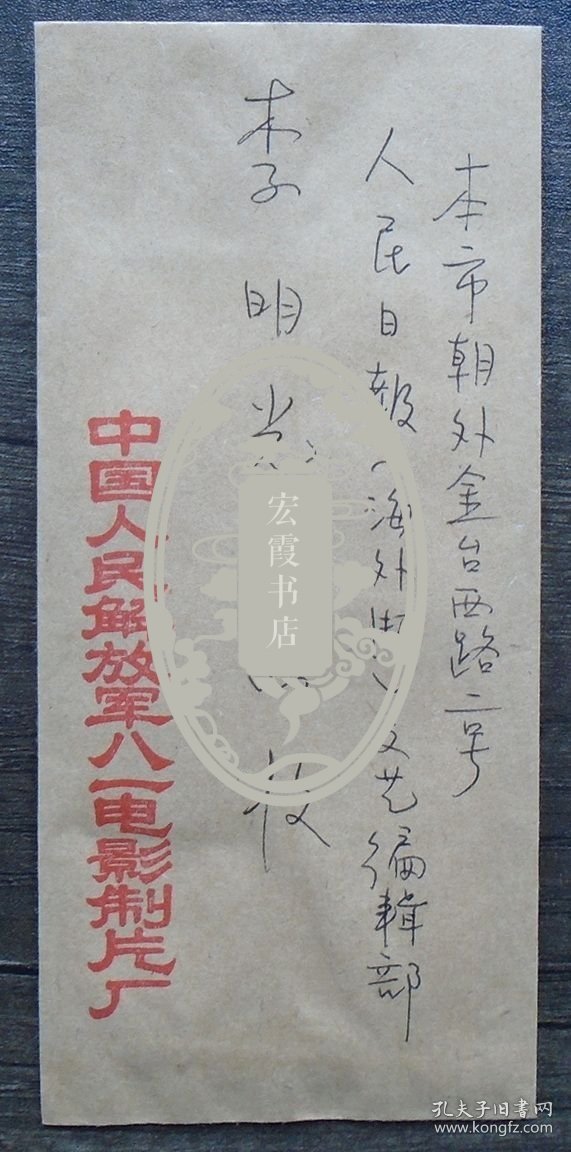 本市朝外金台西路二号
人民日報（海外版）文艺编辑部
李明
收
中国人民解放军八一电影制片厂
宏霞书店
孔夫子旧書网
www.kongfz.com